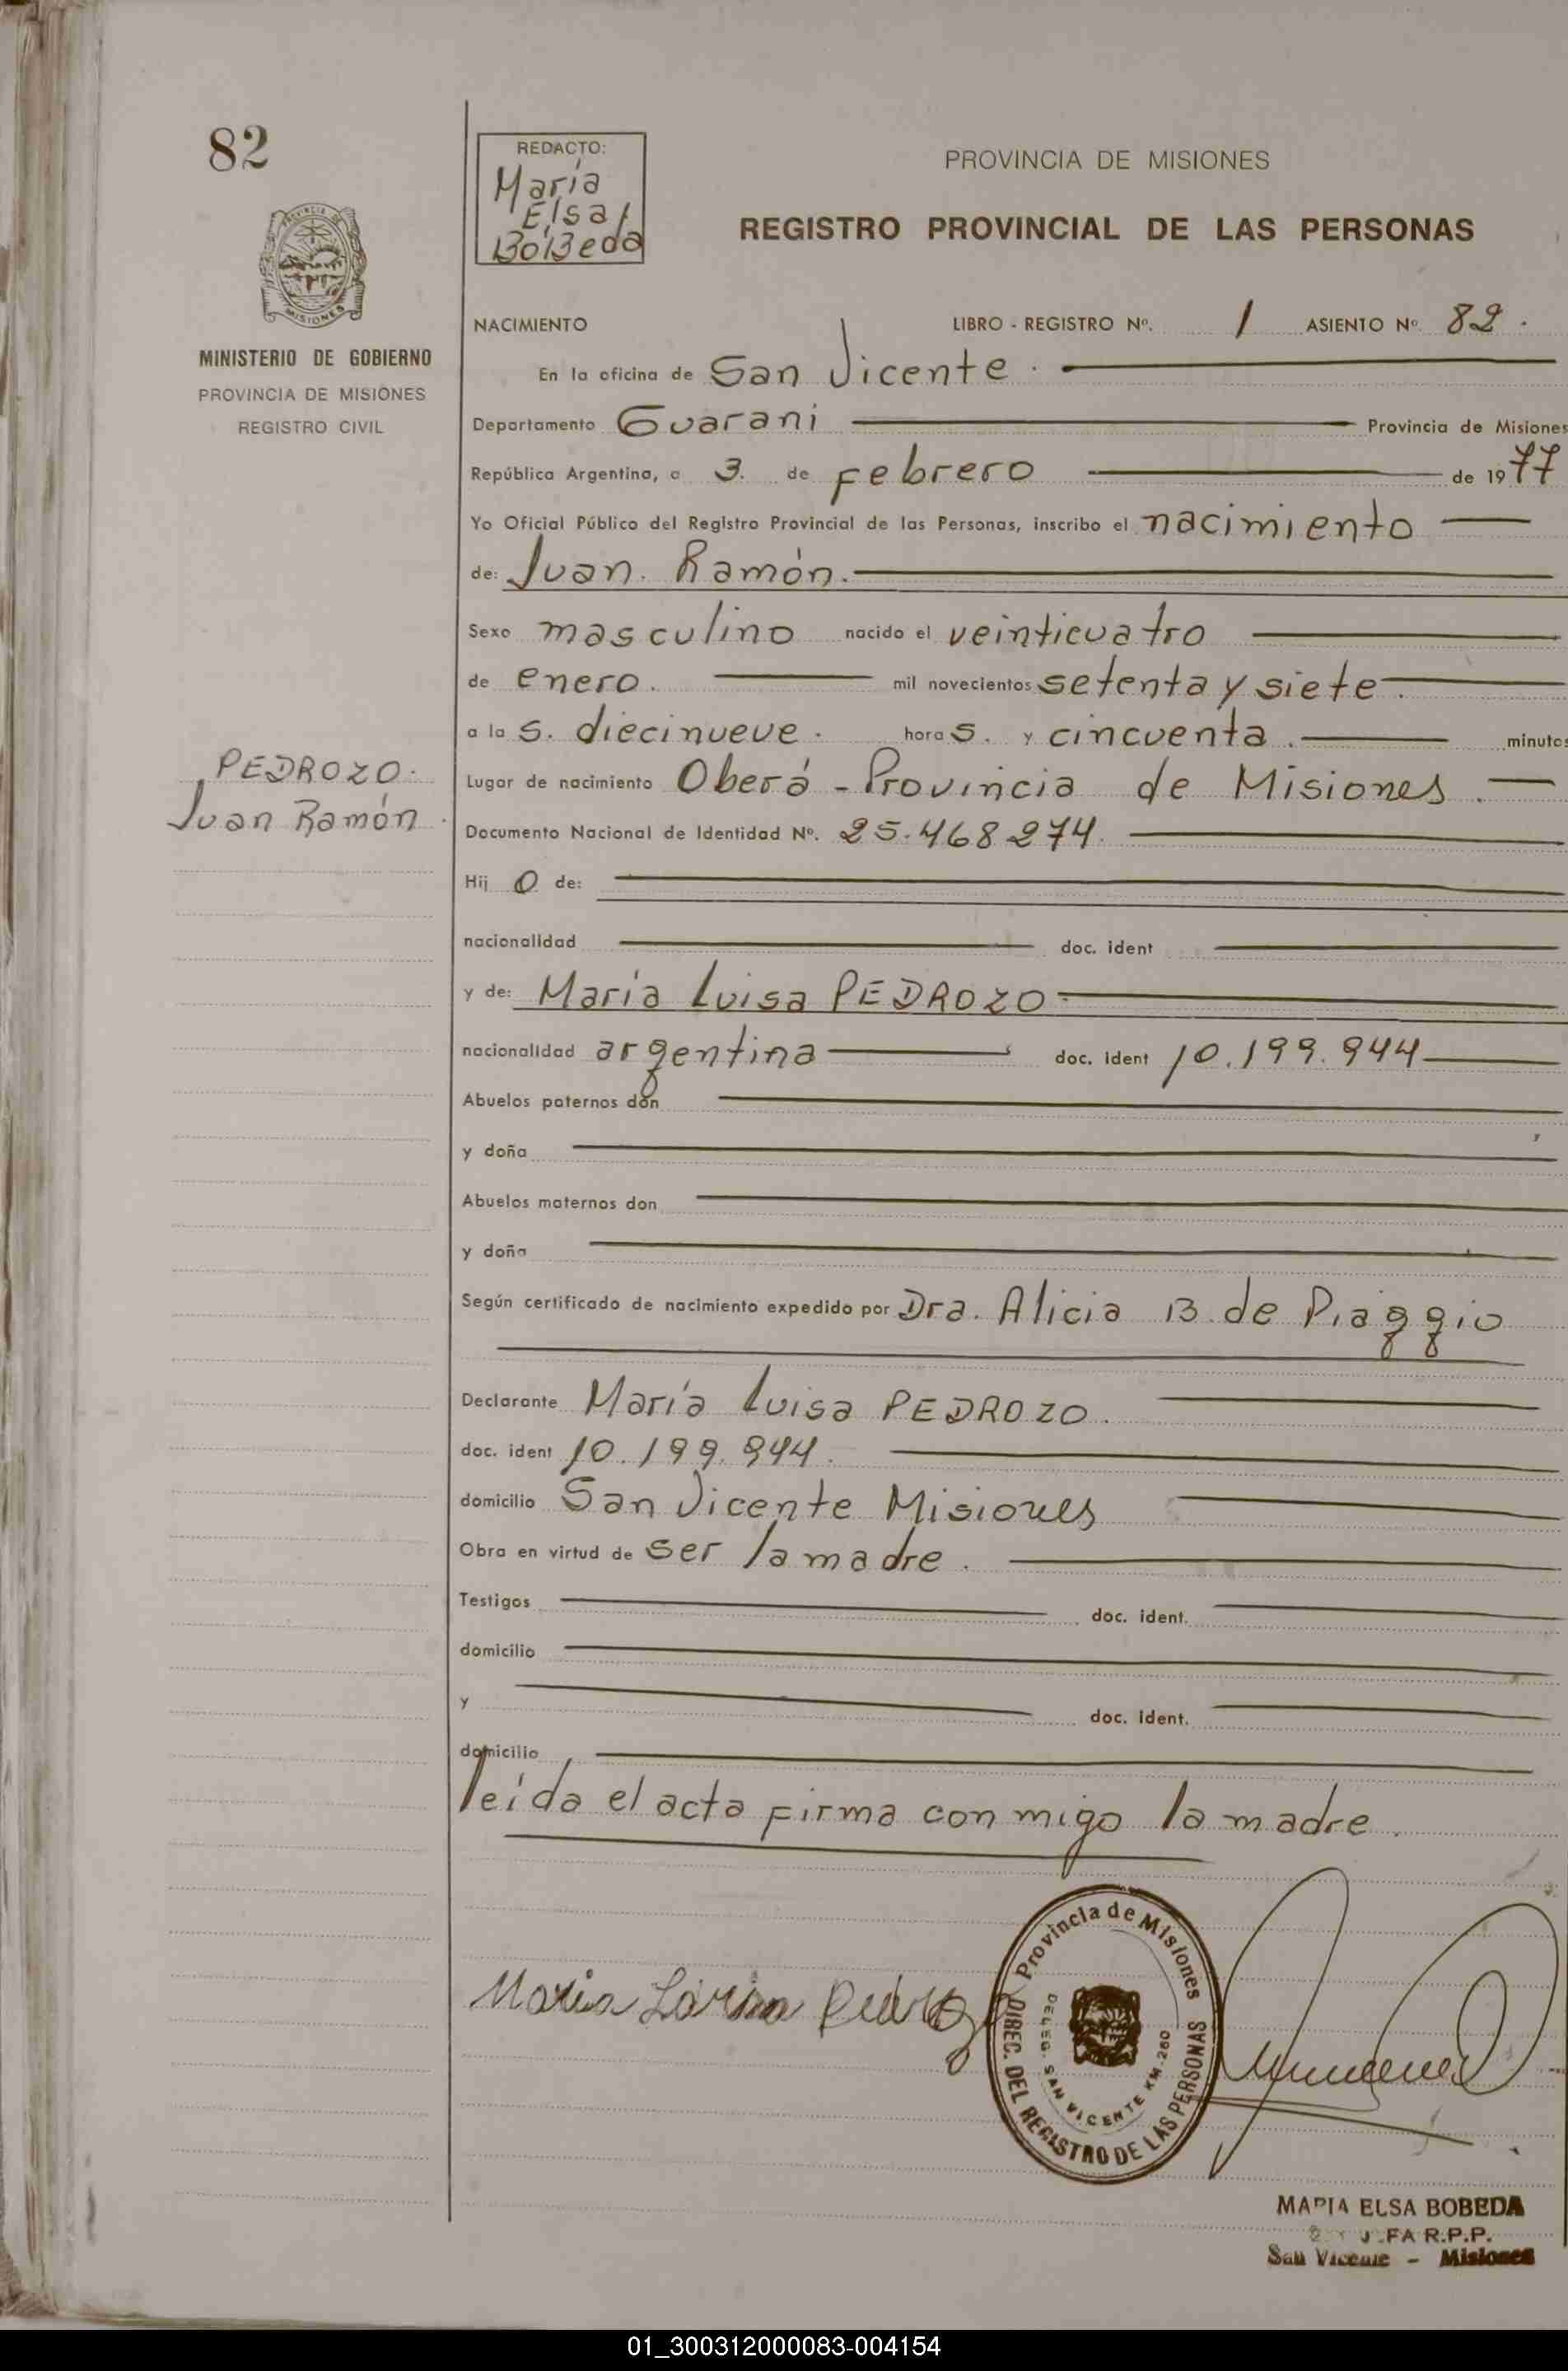 82
REDACTO:
María
Elsa
BoBeda
PROVINCIA DE MISIONES
REGISTRO PROVINCIAL DE LAS PERSONAS
MISIONES
MINISTERIO DE GOBIERNO
PROVINCIA DE MISIONES
REGISTRO CIVIL
NACIMIENTO LIBRO - REGISTRO Nº. 1 ASIENTO Nº 82.
En la oficina de San Vicente.
Departamento Guarani Provincia de Misiones
República Argentina, a 3. de Febrero de 1977
Yo Oficial Público del Registro Provincial de las Personas, inscribo el nacimiento
de: Juan. Ramón.
Sexo masculino nacido el veinticuatro
de enero. mil novecientos setenta y siete.
a la s. diecinueve. hora s. y cincuenta. minutos
PEDROZO.
Juan Ramón.
Lugar de nacimiento Oberá - Provincia de Misiones.
Documento Nacional de Identidad Nº. 25.468274.
Hij o de:
nacionalidad doc. ident
y de: María Luisa PEDROZO
nacionalidad argentina doc. ident 10.199.944
Abuelos paternos don
y doña
Abuelos maternos don
y doña
Según certificado de nacimiento expedido por Dra. Alicia B. de Piaggio
Declarante María Luisa PEDROZO.
doc. ident 10.199.944.
domicilio San Vicente Misiones
Obra en virtud de ser la madre.
Testigos doc. ident.
domicilio
y doc. ident.
domicilio
leída el acta firma con migo la madre.
Provincia de Misiones
DIREC. DEL REGISTRO DE LAS PERSONAS
DELEG. SAN VICENTE KM. 260
MARIA ELSA BOBEDA
R.P.P.
San Vicente - Misiones
01_300312000083-004154